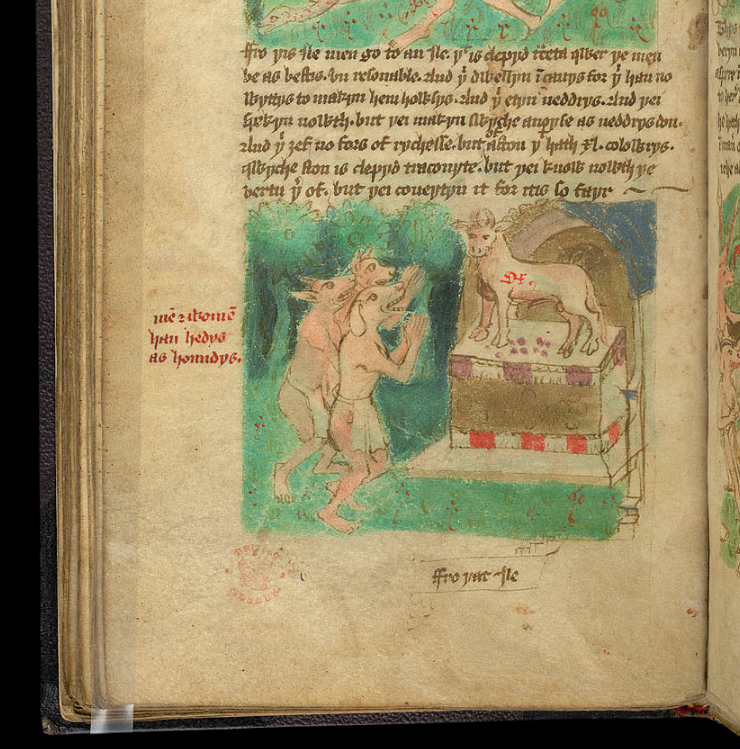 ffro þis Ile men go to an Ile. þt is clepyd Tceta qwer þe men
be as bestis. vn resonable. And þt dwellyn ī cauys for þt han no
wyttys to makyn hem howsys. And þt etyn neddrys. And þei
spekyn nowth. but þei makyn swyche noyse as neddrys don.
And þt zef no fors of rychesse. but of a ston þt hath xl. colowrys.
qwyche ston is clepyd traconyte. but þei know nowth þe
vertu þt of. but þei coueytyn it for itis so fayr
mē & womē
han hedys
as houndys.
Ox
ffro þat Ile